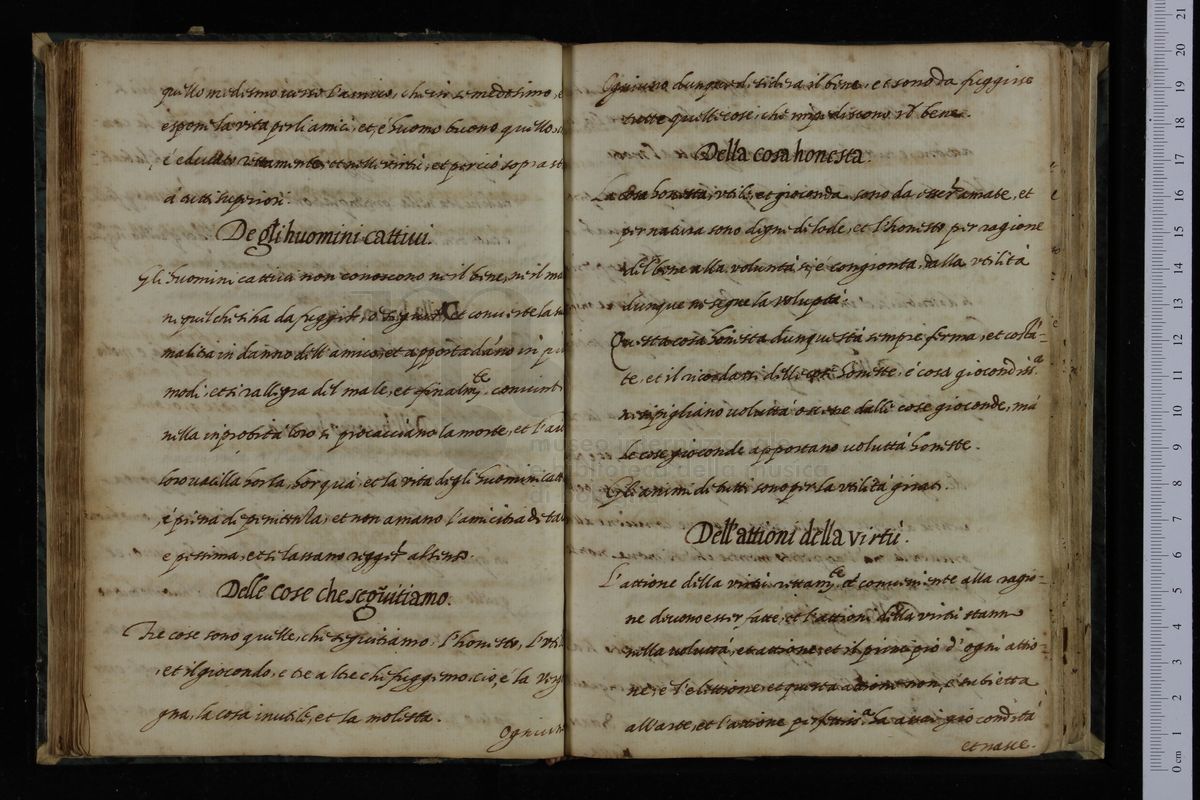 quello medesimo verso l'amico, che in se medesimo, e
espone la vita per li amici, et, é huomo buono quello,
é educato rettamente, et nelle virtù, et perciò sopra st
á tutti superiori.
De gli huomini cattiui.
Gli huomini cattiui non conoscono ne il bene, ne il ma
ne quel che si ha da fuggire, o seguire et conuerte la su
malitia in danno dell'amico, et apporta danno in più
modi, et si rallegra del male, et finalmte
nella improbità loro si procacciano la morte, et l'an
loro uacilla hor la, hor quà, et la vita degli huomini catt
é piena di penitenza, et non amano l'amicitia di
e pessima, et si lassano reggere
Delle cose che seguitiamo.
Tre cose sono quelle, che seguitiamo, l'honesto, l'vti
et il giocondo, e tre altre che fuggimo, cioè, la verg
gna, la cosa inutile, et la molesta.
Ogniun
Ogniuno dunque desidera il bene, et sono da fuggire
tutte quelle cose, che impediscono il bene.
Della cosa honesta.
La cosa honesta, vtile, et gioconda, sono da esser amate, et
per natura sono degne de lode, et l'honesto per ragione
del bene alla voluntà si, é congionta, dalla vtilità
dunque ne segue la voluptà.
Questa cosa honesta dunque stà sempre ferma, et costã-
te, et il ricordarsi delle cose honeste, é cosa giocondissa
ne si pigliano voluttà oscene dalle cose gioconde, mà
le cose gioconde apportano voluttà honeste.
Gli animi di tutti sono per la vtilità grati.
Dell'attioni della virtù.
L'attione della virtù rettamte, et conueniente alla ragio-
ne deuono esser fatte, et l'attioni della virtù stanno
nella voluttà, et attione, et il principio d'ogni attio-
ne, é l'elettione, et questa attione non, é subietta
all'arte, et l'attione perfettissa ha assai giocondità
et nasce.